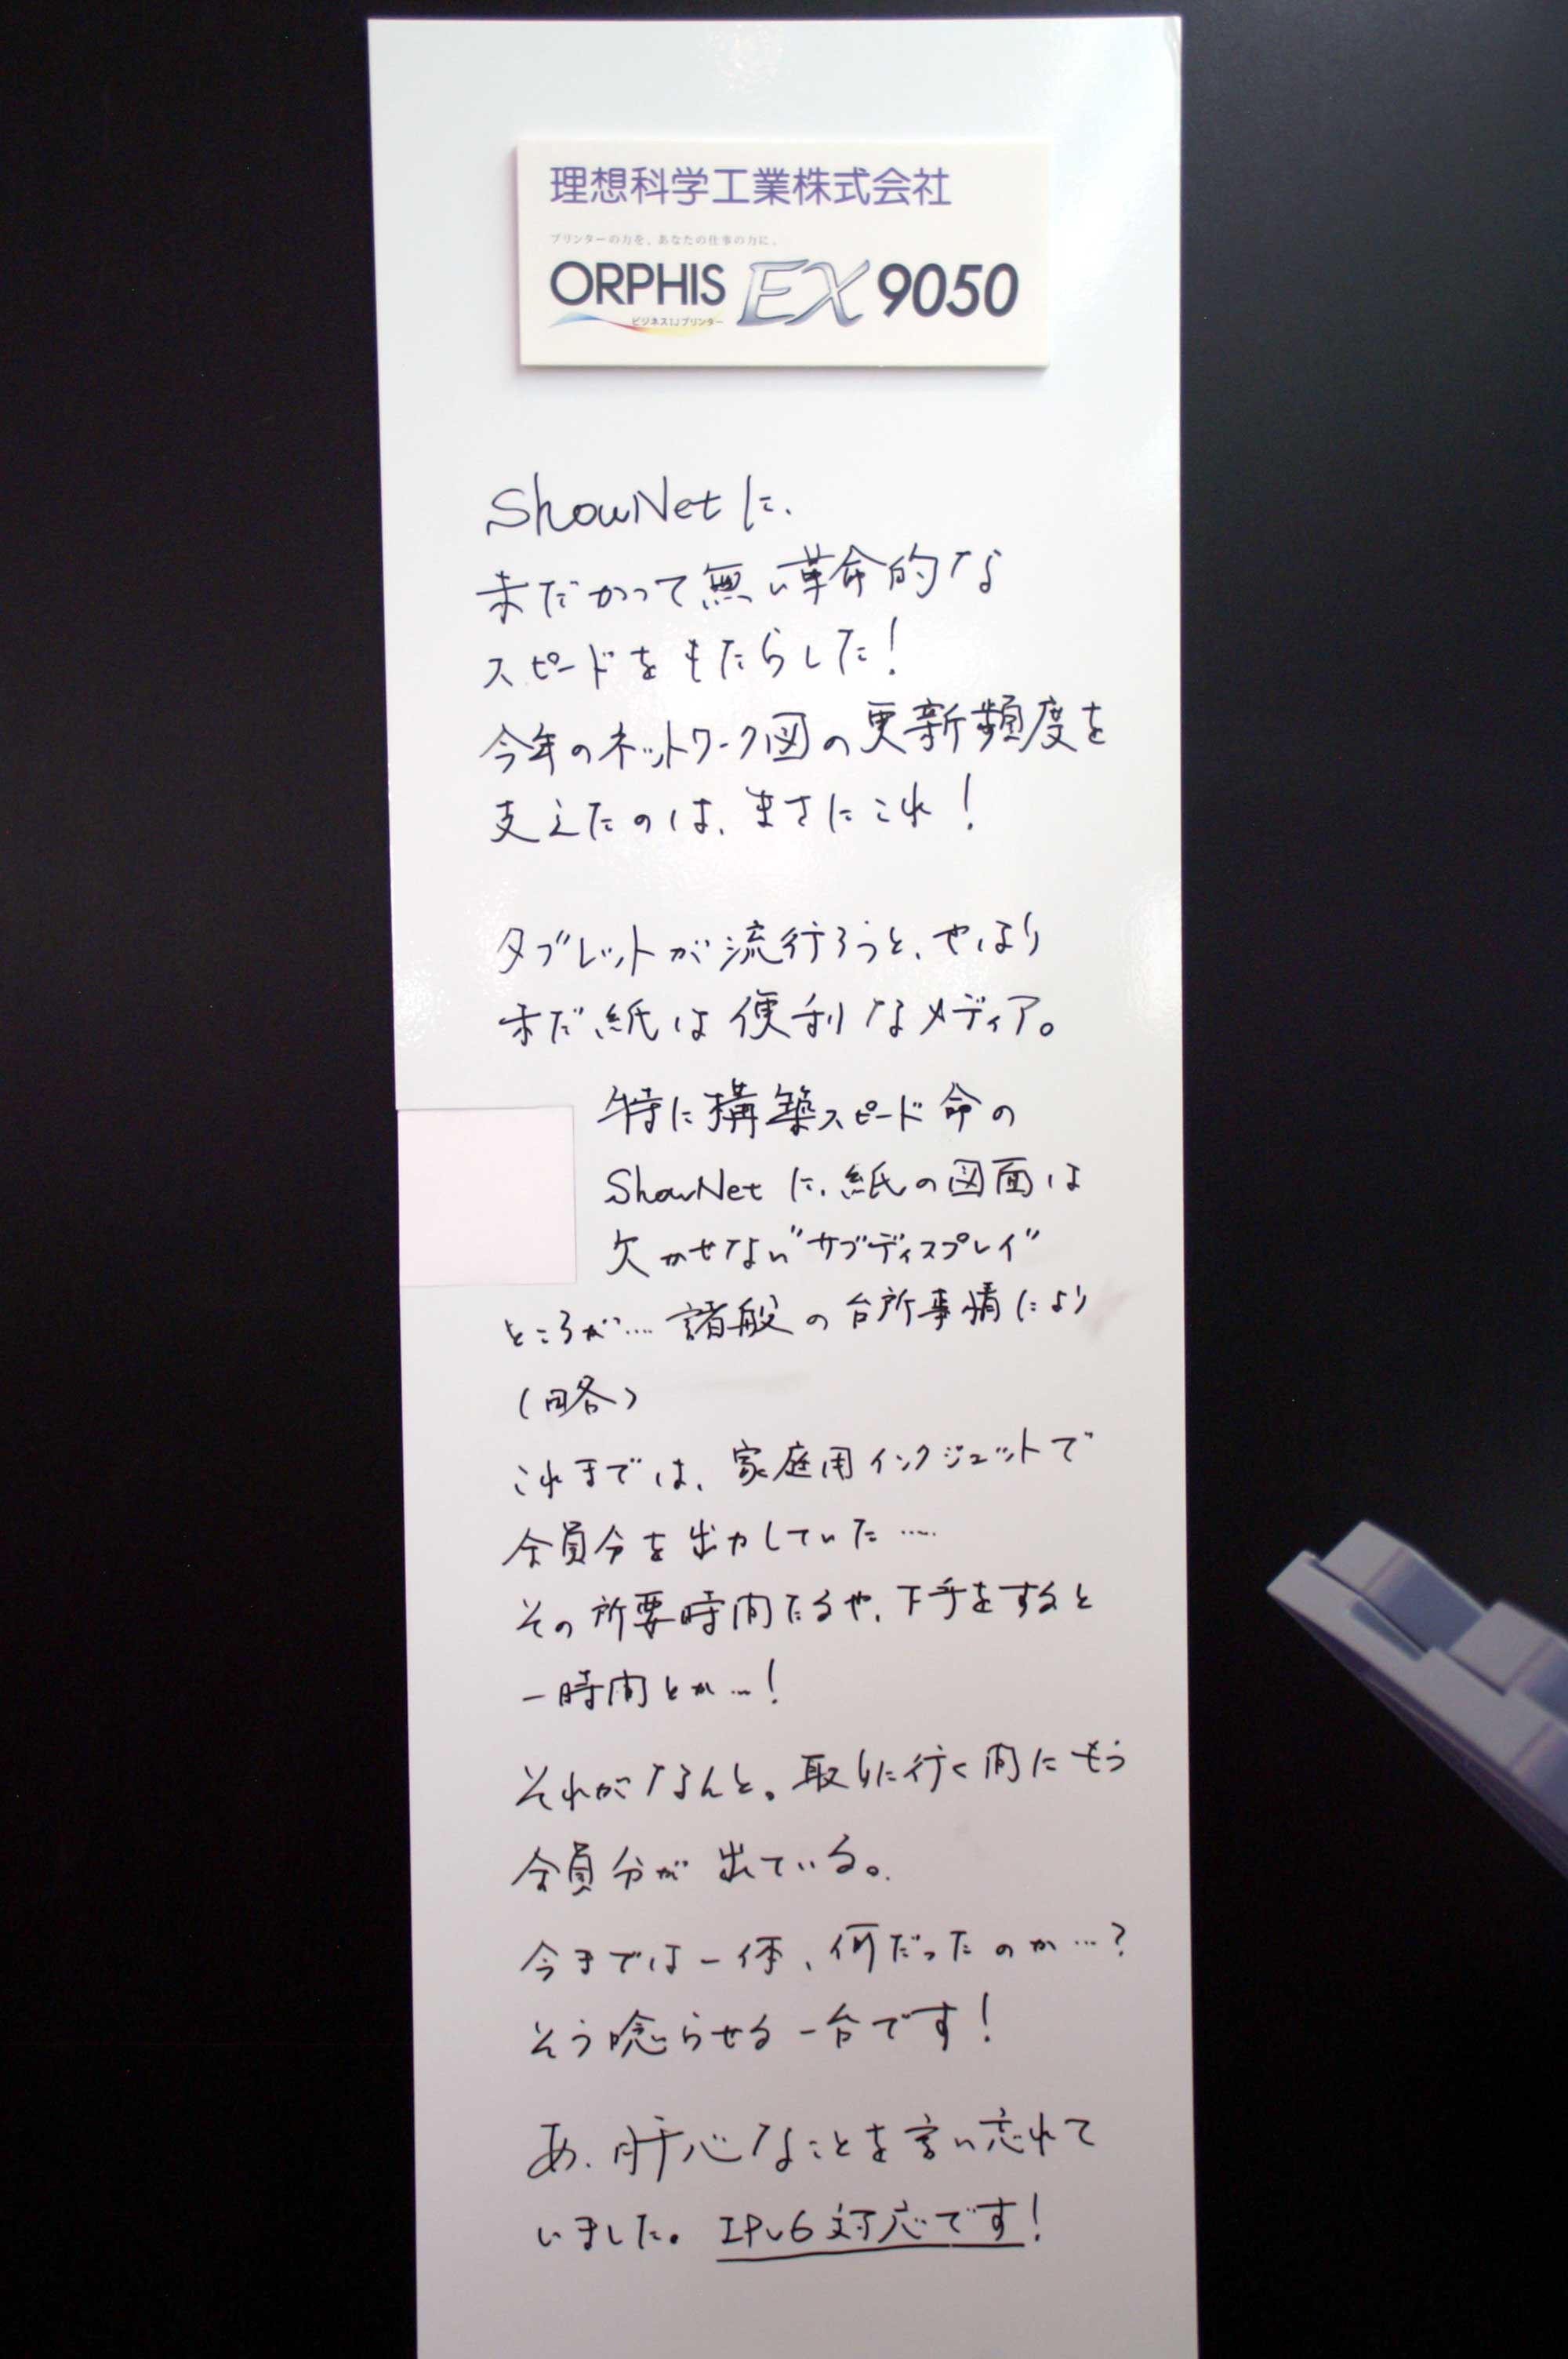 理想科学工業株式会社
プリンターの力を、あなたの仕事の力に。
ORPHIS EX 9050
ビジネスIJプリンター
ShowNetに、
未だかつて無い革命的な
スピードをもたらした!
今年のネットワーク図の更新頻度を
支えたのは、まさにこれ!
タブレットが流行ろうと、やはり
未だ紙は便利なメディア。
特に構築スピード命の
ShowNetに、紙の図面は
欠かせない"サブディスプレイ"
ところが…諸般の台所事情により
(略)
これまでは、家庭用インクジェットで
全員分を出力していた…
その所要時間たるや、下手をすると
一時間とか…!
それがなんと。取りに行く間にもう
全員分が出ている。
今までは一体、何だったのか…?
そう唸らせる一台です!
あ、肝心なことを言い忘れて
いました。IPv6対応です!